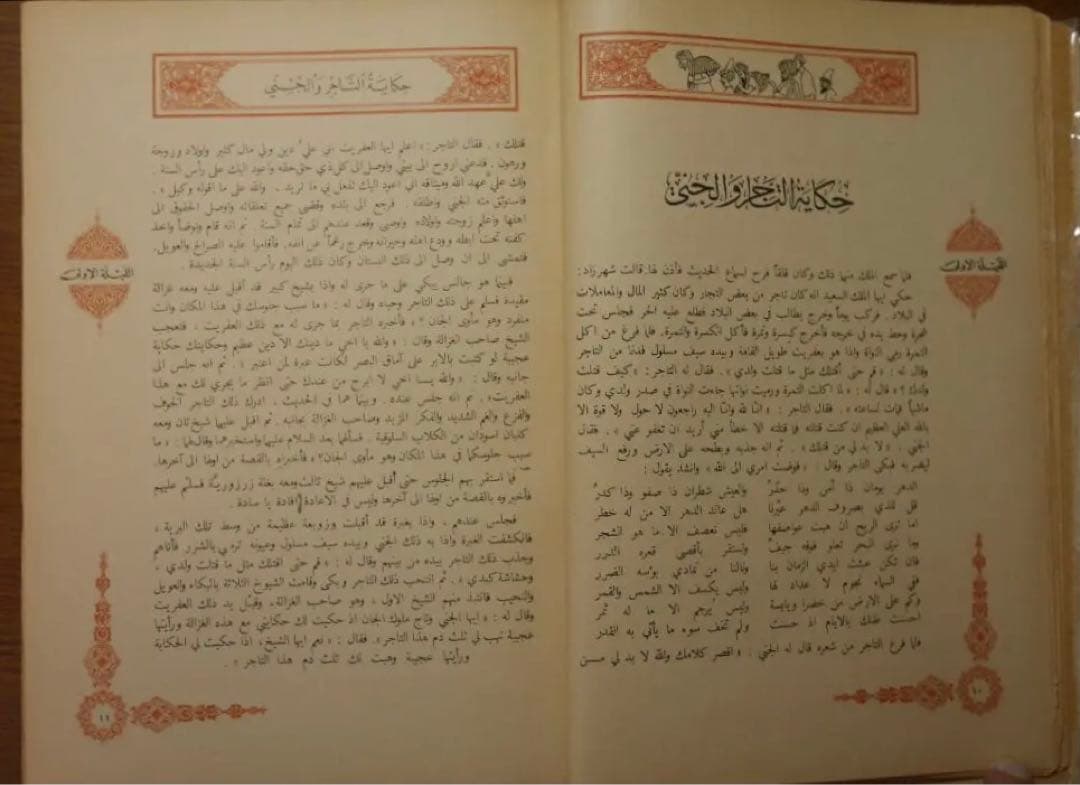 حكاية التاجر والجني
الليلة الاولى
فلما سمع الملك منها ذلك وكان قلقاً فرح لسماع الحديث فأذن لها. قالت شهرزاد :
حكي ايها الملك السعيد انه كان تاجر من بعض التجار وكان كثير المال والمعاملات
في البلاد . فركب يوماً وخرج يطالب في بعض البلاد فطلع عليه الحر فجلس تحت
شجرة وحط يده في خرجه فأخرج كسرة وتمرة فأكل الكسرة والتمرة. فلما فرغ من اكل
التمرة رمى النواة واذا هو بعفريت طويل القامة وبيده سيف مسلول فدنا من التاجر
وقال له : « قم حتى أقتلك مثل ما قتلت ولدي » . فقال له التاجر : «كيف قتلت
ولدك ؟ » قال له : « لما اكلت التمرة ورميت نواتها جاءت النواة في صدر ولدي وكان
ماشياً فمات لساعته » . فقال التاجر : « انا لله وانا اليه راجعون لا حول ولا قوة الا
بالله العلي العظيم ان كنت قتلته فما قتلته الا خطأ مني أريد ان تعفو عني » . فقال
الجني : « لا بد لي من قتلك » . ثم انه جذبه وبطحه على الارض ورفع السيف
ليضربه فبكى التاجر وقال : « فوضت امري الى الله » وانشد يقول :
الدهر يومان ذا أمن وذا حذر والعيش شطران ذا صفو وذا كدر
قل للذي بصروف الدهر عيّرنا هل عاند الدهر الا من له خطر
اما ترى الريح ان هبت عواصفها فليس تعصف الا ما هو الشجر
وما ترى البحر تعلو فوقه جيف وتستقر بأقصى قعره الدرر
فان تكن عبثت ايدي الزمان بنا ونالنا من تمادي بؤسه الضرر
ففي السماء نجوم لا عداد لها وليس يكسف الا الشمس والقمر
وكم على الارض من خضرا ويابسة وليس يُرجم الا ما له ثمر
احسنت ظنك بالايام اذ حسنت ولم تخف سوء ما يأتي به القدر
فلما فرغ التاجر من شعره قال له الجني : « اقصر كلامك والله لا بد لي مسن
١٠
حكاية التاجر والجني
الليلة الاولى
قتلك » . فقال التاجر : « اعلم ايها العفريت ني علي دين ولي مال كثير واولاد وزوجة
ورهون . فدعني اروح الى بيتي واوصل الى كل ذي حق حقه واعود اليك على رأس السنة .
ولك عليّ عهد الله وميثاقه اني اعود اليك تفعل بي ما تريد . والله على ما اقوله وكيل » .
فاستوثق منه الجني واطلقه . فرجع الى بلده وقضى جميع تعلقاته واوصل الحقوق الى
اهلها واعلم زوجته واولاده واوصى وقعد عندهم الى تمام السنة . ثم انه قام وتوضأ واخذ
كفنه تحت ابطه وودع اهله وجيرانه وخرج رغماً عن انفه. فأقاموا عليه الصراخ والعويل.
فتمشى الى ان وصل الى ذلك البستان وكان ذلك اليوم رأس السنة الجديدة .
فبينما هو جالس يبكي على ما جرى له واذا بشيخ كبير قد اقبل عليه ومعه غزالة
مقيدة فسلم على ذلك التاجر وحياه وقال له : « ما سبب جلوسك في هذا المكان وانت
منفرد وهو مأوى الجان ؟ » فأخبره التاجر بما جرى له مع ذلك العفريت ، فتعجب
الشيخ صاحب الغزالة وقال : « والله يا اخي ما دينك الا دين عظيم وحكايتك حكاية
عجيبة لو كتبت بالابر على آماق البصر لكانت عبرة لمن اعتبر » . ثم انه جلس الى
جانبه وقال : « والله يسا اخي لا ابرح من عندك حتى انظر ما يجري لك مع هذا
العفريت» . ثم انه جلس عنده. وبينما هما في الحديث . ادرك ذلك التاجر الخوف
والفزع والغم الشديد والفكر المزيد وصاحب الغزالة بجانبه . ثم اقبل عليهما شيخ ثان ومعه
كلبان اسودان من الكلاب السلوقية . فسألهما بعد السلام عليهما واستخبرهما وقال لهما : « ما
سبب جلوسكما في هذا المكان وهو مأوى الجان؟» فأخبراه بالقصة من اولها الى آخرها.
فما استقر بهم الجلوس حتى أقبل عليهم شيخ ثالث ومعه بغلة زرزورية فسلم عليهم
فأخبروه بالقصة من اولها الى آخرها وليس في الاعادة إفادة يا سادة .
فجلس عندهم ، واذا بغبرة قد أقبلت وزوبعة عظيمة من وسط تلك البرية ،
فانكشفت الغبرة واذا به ذلك الجني وبيده سيف مسلول وعيونه ترمي بالشرر فأتاهم
وجذب ذلك التاجر بيده من بينهم وقال له : « قم حتى اقتلك مثل ما قتلت ولدي ،
وحشاشة كبدي » . ثم انتحب ذلك التاجر وبكى وقامت الشيوخ الثلاثة بالبكاء والعويل
والنحيب فانتبذ منهم الشيخ الاول ، وهو صاحب الغزالة ، وقبّل يد ذلك العفريت
وقال له : « ايها الجني وتاج ملوك الجان اذ حكيت لك حكايتي مع هذه الغزالة ورأيتها
عجيبة تهب لي ثلث دم هذا التاجر». فقال : «نعم ايها الشيخ، اذا حكيت لي الحكاية
ورأيتها عجيبة وهبت لك ثلث دم هذا التاجر» .
١١